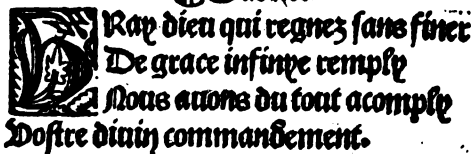 VRay dieu qui regnez sans finer
De grace infinye remply
Nous auons du tout acomply
Vostre diuin commandement.